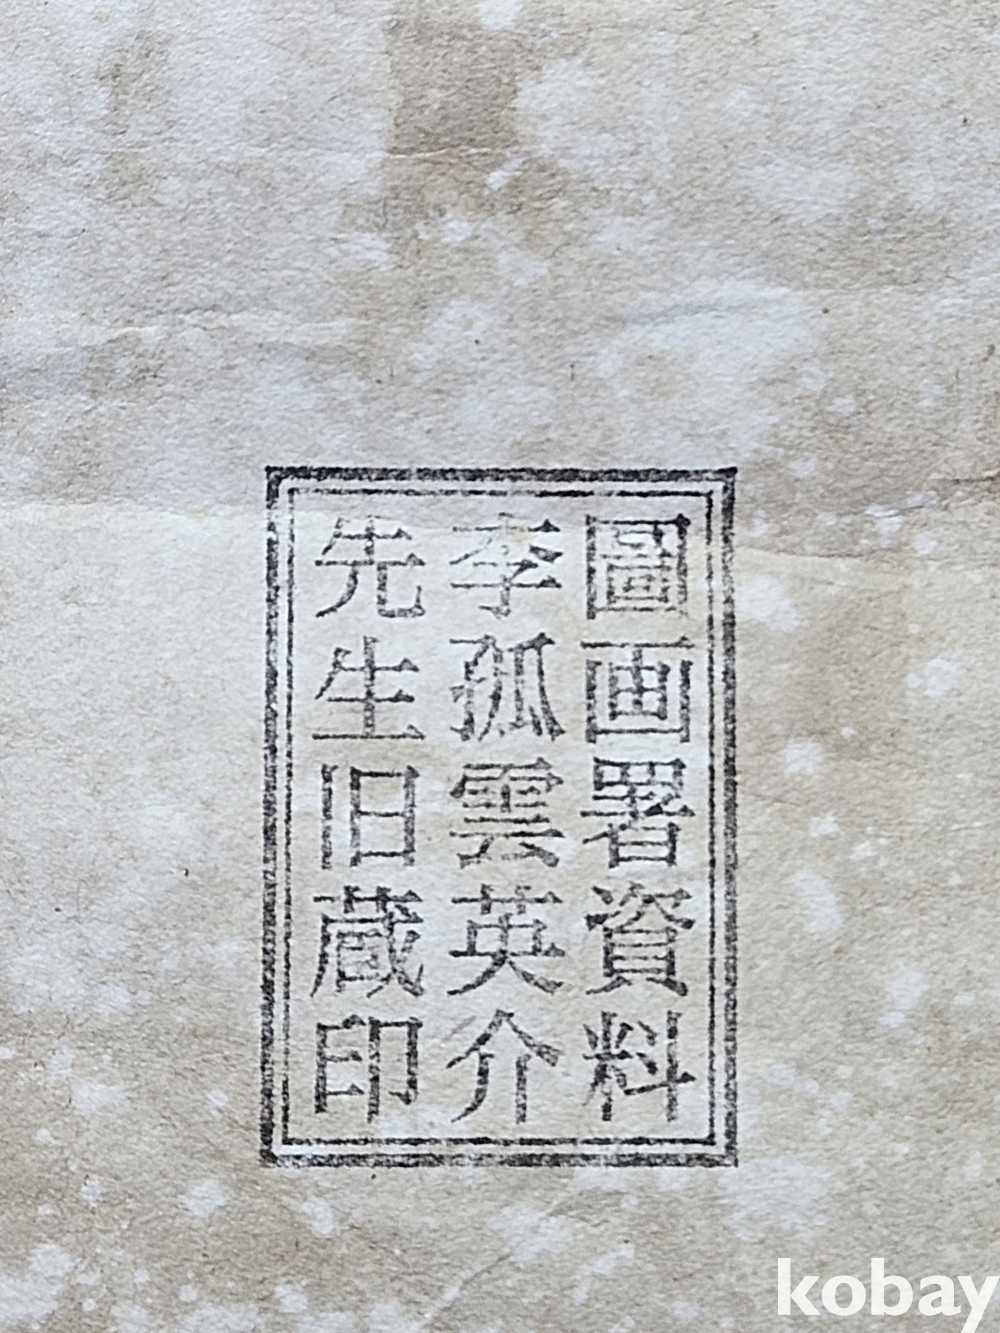 圖画署資料
李孤雲英介
先生旧蔵印
kobay